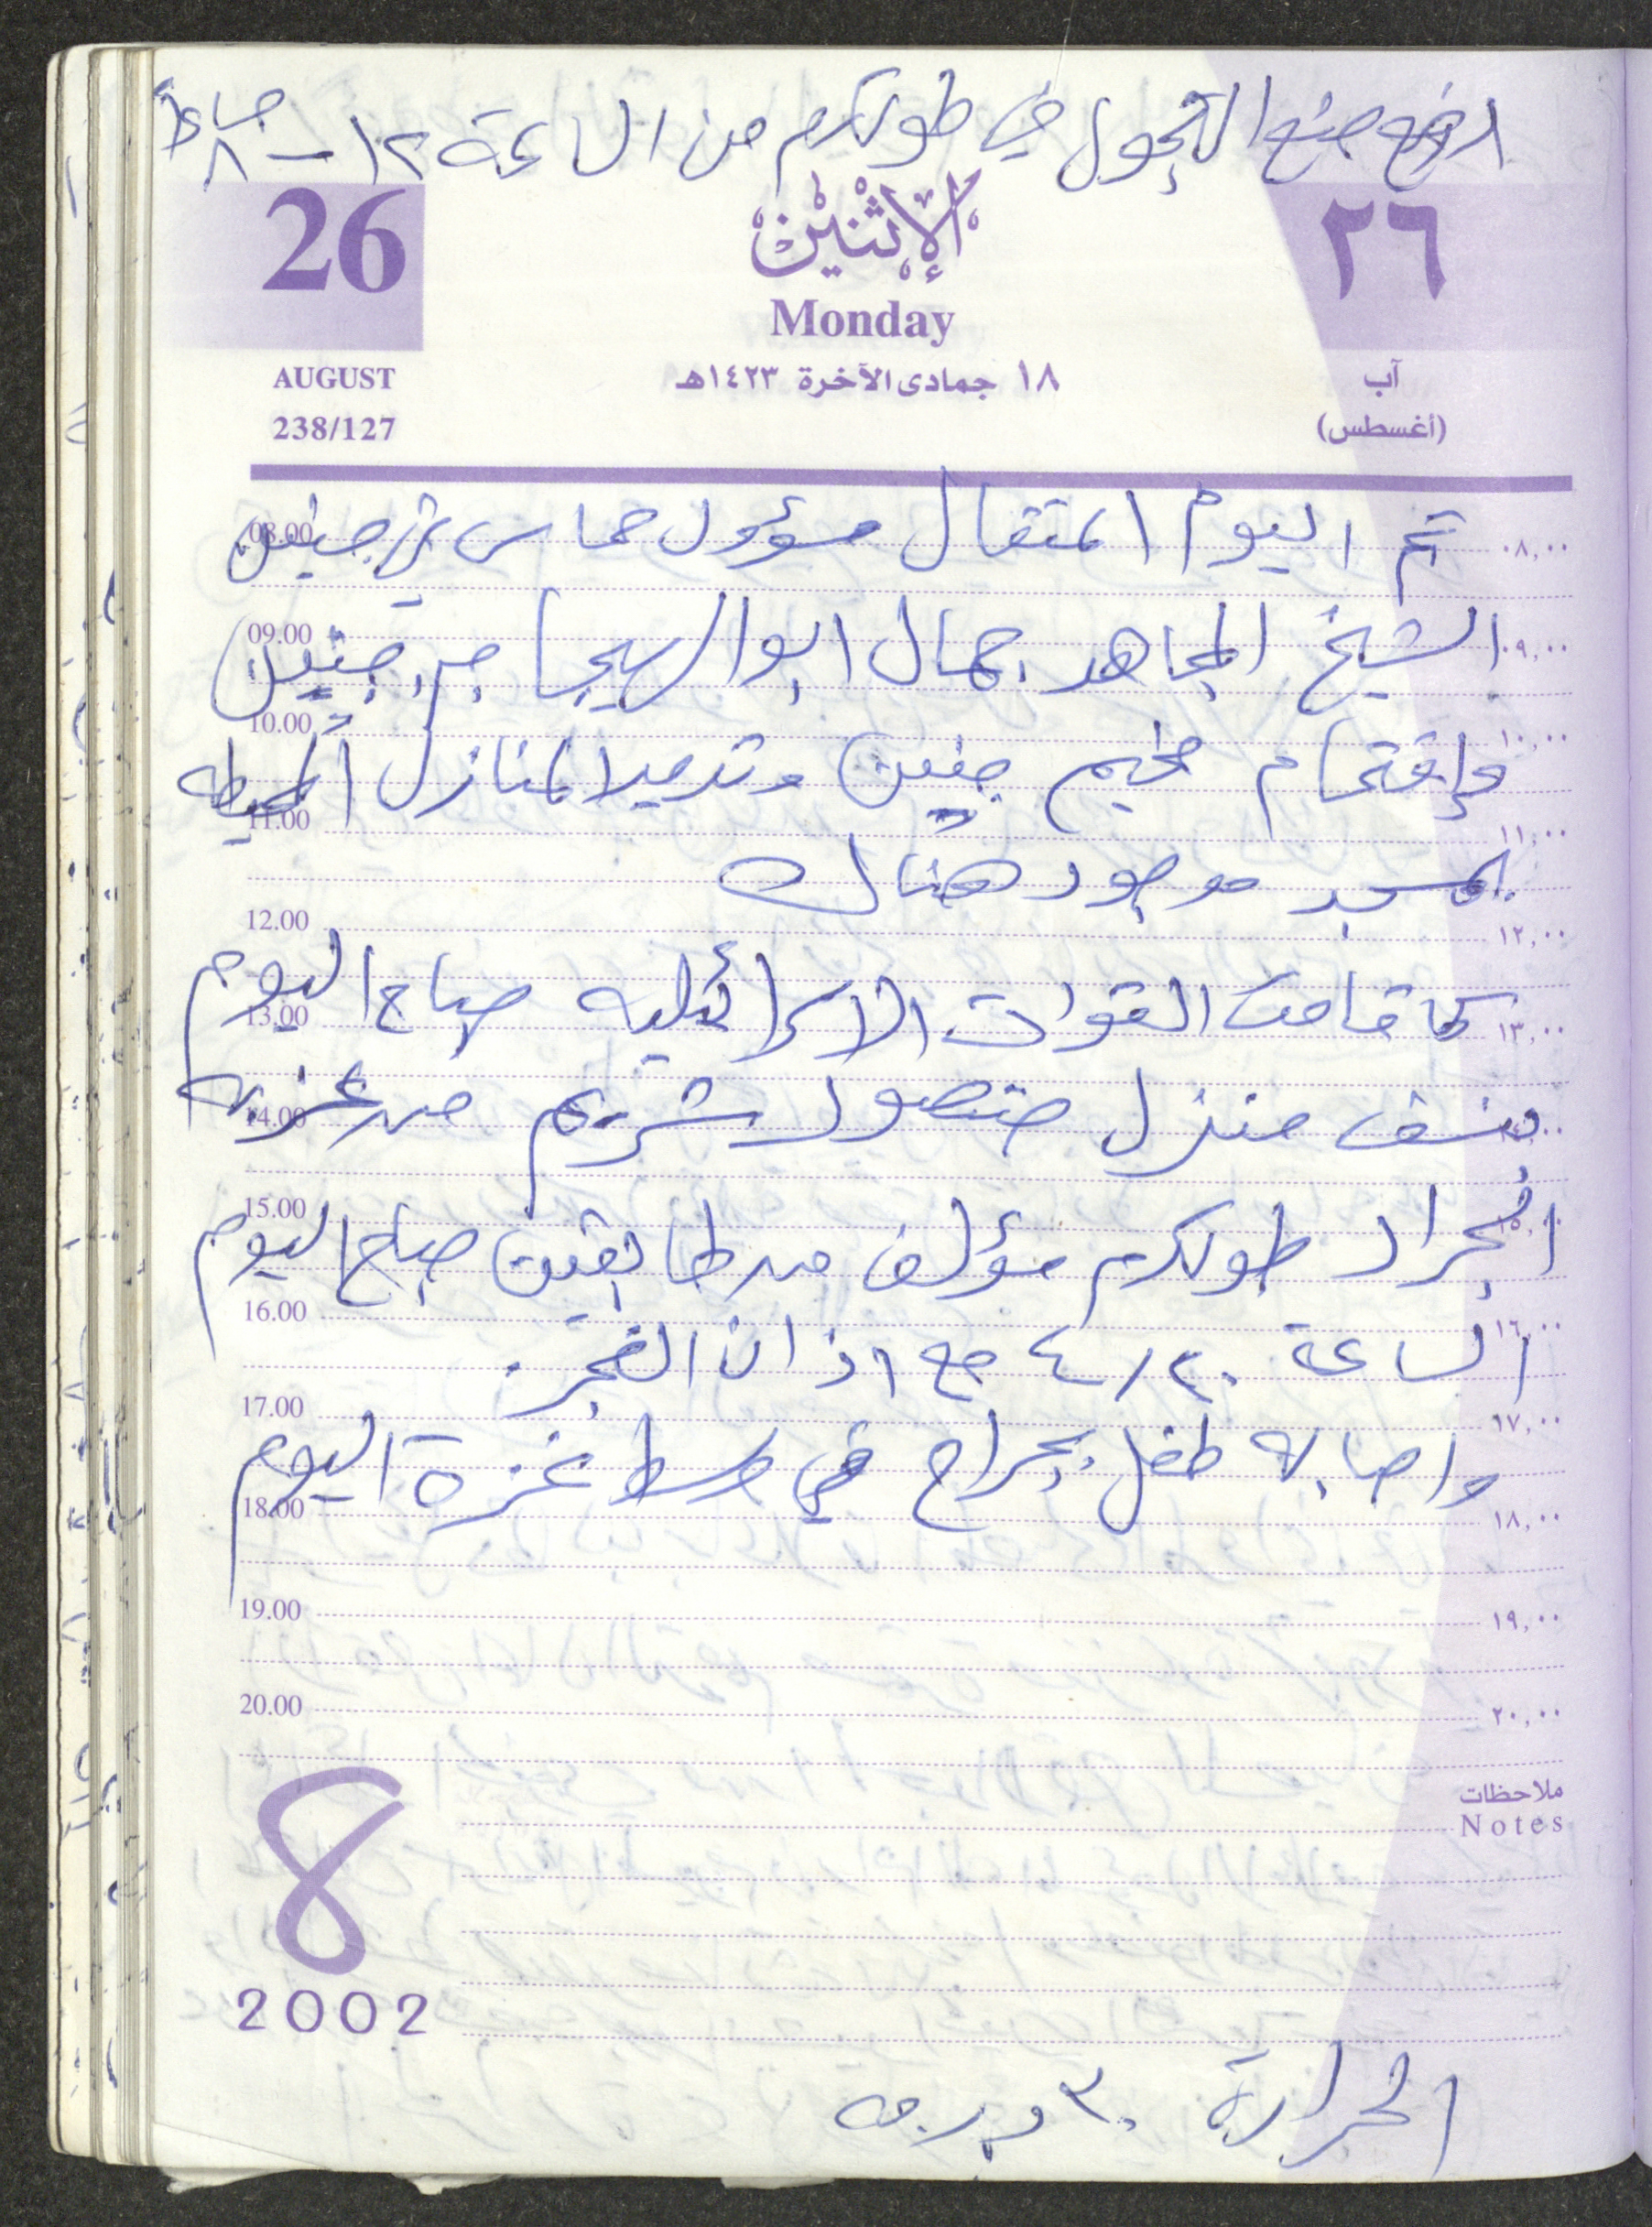 ارفع منع التجول في طولكرم من الساعة ١٢ - ٨ مساءً
26
الإثنين
٢٦
Monday
AUGUST
١٨ جمادى الآخرة ١٤٢٣هـ
آب
238/127
(أغسطس)
08.00 تم اليوم اعتقال مسؤول حماس في جنين ٠٨,٠٠
09.00 الشيخ المجاهد جمال ابو الهيجا من جنين ٠٩,٠٠
10.00 وإقتحام مخيم جنين وتدمير المنازل المحيطه ١٠,٠٠
11.00 بمسجد موجود هناك ١١,٠٠
12.00 ١٢,٠٠
13.00 كما قامت القوات الاسرائيليه صباح اليوم ١٣,٠٠
14.00 بنسف منزل منصور شريم من عزبه
15.00 الجراد طولكرم مؤلف من طابقين صباح اليوم
16.00 الساعة ٤/٢٠ مع اذان الفجر. ١٦,٠٠
17.00 ١٧,٠٠
واصابه طفل بجراح في وسط غزة اليوم
18.00 ١٨,٠٠
19.00 ١٩,٠٠
20.00 ٢٠,٠٠
ملاحظات
Notes
8
2002
الحرارة ٣٠ درجه